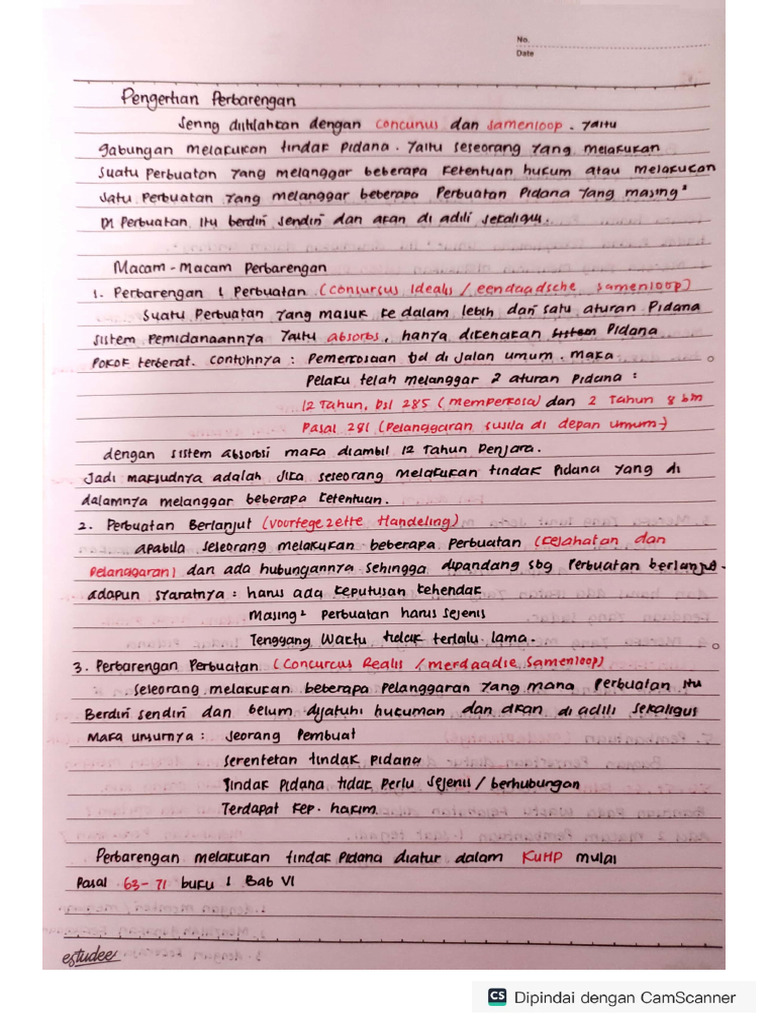 No.
Date
Pengertian Perbarengan
Sering diistilahkan dengan concunus dan samenloop. Yaitu
gabungan melakukan tindak pidana. Yaitu seseorang yang melakukan
suatu perbuatan yang melanggar beberapa ketentuan hukum atau melakukan
satu perbuatan yang melanggar beberapa perbuatan pidana yang masing²
Dri perbuatan itu berdiri sendiri dan akan di adili sekaligus.
Macam-Macam Perbarengan
1. Perbarengan 1 perbuatan (Consursus Idealis / eendaadsche samenloop)
Suatu perbuatan yang masuk ke dalam lebih dari satu aturan pidana
sistem pemidanaannya yaitu absorbs, hanya dikenakan sistem pidana
pokok terberat. contohnya : pemerkosaan tjd di jalan umum. maka
pelaku telah melanggar 2 aturan pidana :
12 Tahun, psl 285 (memperkosa) dan 2 Tahun 8 bln
Pasal 281 (pelanggaran susila di depan umum)
dengan sistem absorbsi maka diambil 12 Tahun penjara.
Jadi maksudnya adalah jika seseorang melakukan tindak pidana yang di
dalamnya melanggar beberapa ketentuan.
2. Perbuatan Berlanjut (Voortegezette Handeling)
apabila seseorang melakukan beberapa perbuatan (kejahatan dan
pelanggaran) dan ada hubungannya sehingga dipandang sbg perbuatan berlanjut.
adapun syaratnya : harus ada keputusan kehendak
Masing² perbuatan harus sejenis
Tenggang waktu tidak terlalu lama.
3. Perbarengan Perbuatan (Concurcus Realis / merdaadse Samenloop)
Seseorang melakukan beberapa pelanggaran yang mana perbuatan itu
Berdiri sendiri dan belum dijatuhi hukuman dan akan di adili sekaligus
Maka unsurnya : Seorang pembuat
Serentetan tindak pidana
Tindak pidana tidak perlu sejenis / berhubungan
Terdapat kep. hakim.
Perbarengan melakukan tindak pidana diatur dalam KUHP mulai
Pasal 63-71 buku 1 Bab VI
estudee
CS Dipindai dengan CamScanner